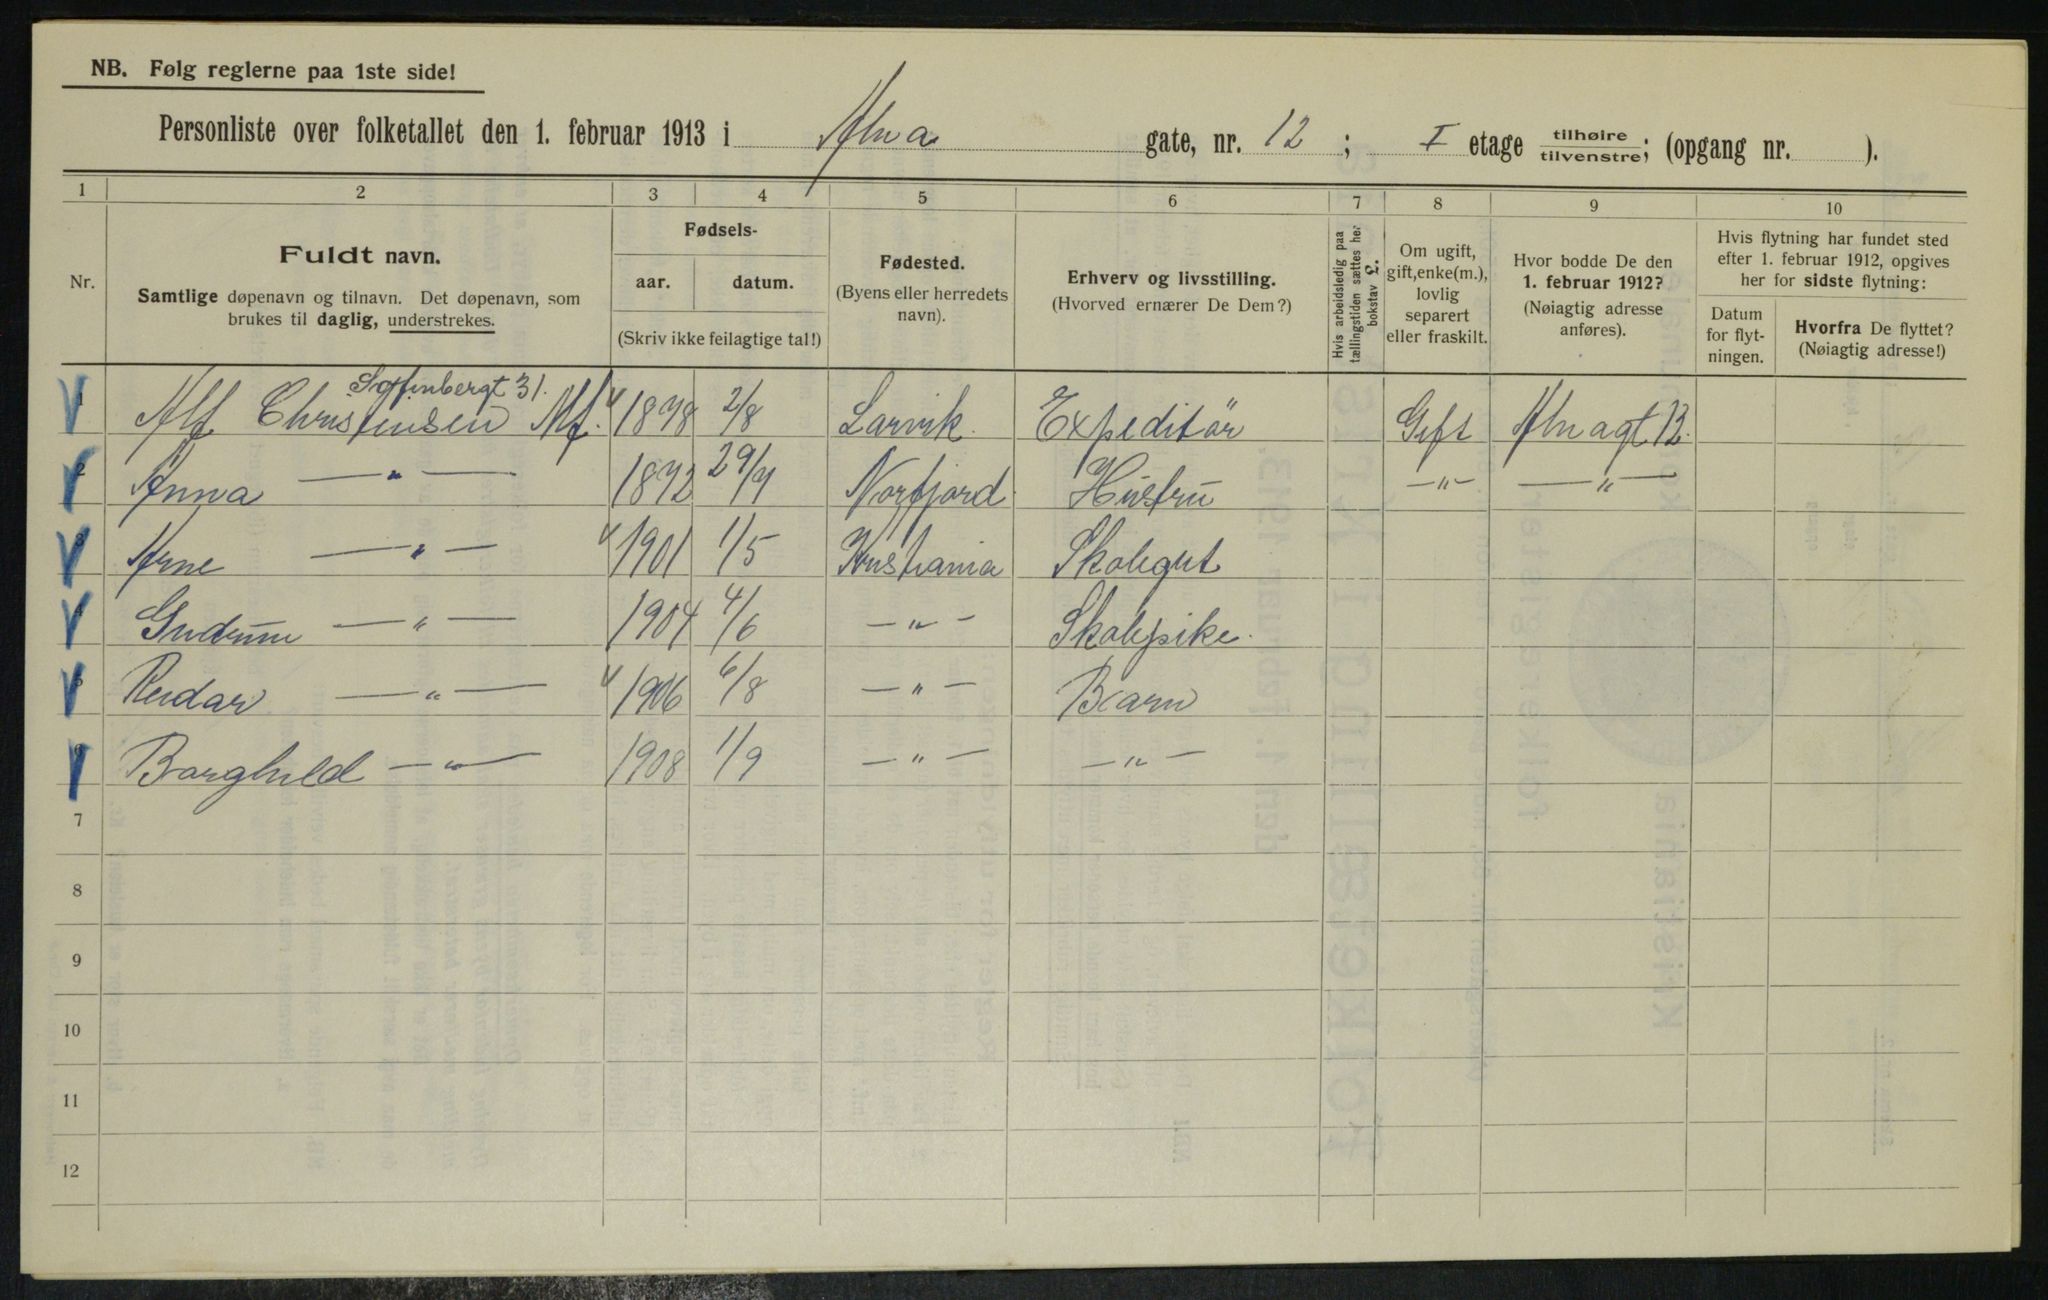 NB. Følg reglerne paa 1ste side!
Personliste over folketallet den 1. februar 1913 i Alna gate, nr. 12; I etage tilhøire/tilvenstre; (opgang nr. ).
1 2 3 4 5 6 7 8 9 10
Nr.
Fuldt navn.
Samtlige døpenavn og tilnavn. Det døpenavn, som
brukes til daglig, understrekes.
Fødsels-
aar. datum.
(Skriv ikke feilagtige tal!)
Fødested.
(Byens eller herredets
navn).
Erhverv og livsstilling.
(Hvorved ernærer De Dem?)
Hvis arbeidsledig paa
tællingstiden sættes her
bokstav L.
Om ugift,
gift, enke(m.),
lovlig
separert
eller fraskilt.
Hvor bodde De den
1. februar 1912?
(Nøiagtig adresse
anføres).
Hvis flytning har fundet sted
efter 1. februar 1912, opgives
her for sidste flytning:
Datum
for flyt-
ningen.
Hvorfra De flyttet?
(Nøiagtig adresse!)
Sofienbergt 31.
1 Alf Christensen Mf. 1878 2/8 Larvik Expeditör Gift Alnagt 12.
2 Anna —"— 1872 29/9 Norfjord Hustru —"— —"—
3 Arne —"— 1901 1/5 Kristiania Skolegut
4 Gudrun —"— 1904 4/6 —"— Skolepike.
5 Reidar —"— 1906 6/8 —"— Barn
6 Borghild —"— 1908 1/9 —"— —"—
7
8
9
10
11
12